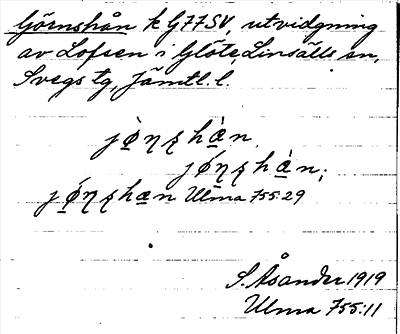 Görnshån k G77SV, utvidgning
av Lofsen i Glöte, Linsälls sn,
Svegs tg, Jämtl. l.
jö̀ηʂhæ̀n
jǿηʂhæ̀n;
jǿηʂhæn Ulma 755:29
S. Åsander 1919
Ulma 755:11